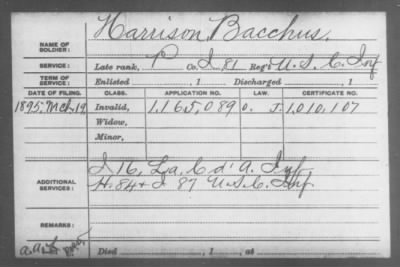 NAME OF SOLDIER: Harrison, Bacchus.
SERVICE: Late rank, P Co. I. 81 Reg't U.S.C. Inf
TERM OF SERVICE: Enlisted , 1 Discharged , 1
DATE OF FILING. CLASS. APPLICATION NO. LAW. CERTIFICATE NO.
1895, Mch, 19 Invalid, 1.165,089 O. J. 1,010,107
Widow,
Minor,
ADDITIONAL SERVICES: I 16, La. C d'A. Inf
H. 84 & I 87 U.S.C. Inf.
REMARKS:
Died , 1 , at